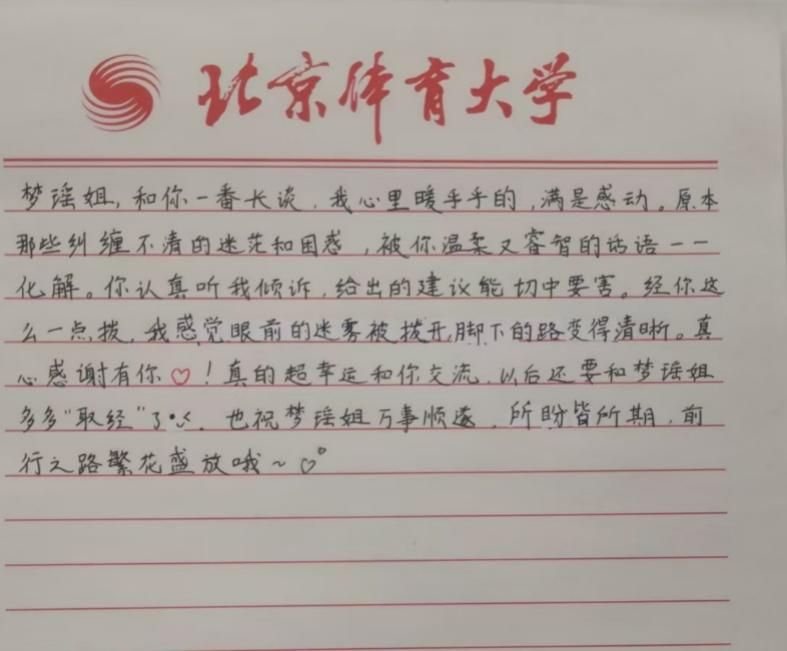 北京体育大学
梦瑶姐，和你一番长谈，我心里暖乎乎的，满是感动。原本
那些纠缠不清的迷茫和困惑，被你温柔又睿智的话语一一
化解。你认真听我倾诉，给出的建议能切中要害。经你这
么一点拨，我感觉眼前的迷雾被拨开，脚下的路变得清晰。真
心感谢有你♡！真的超幸运和你交流，以后还要和梦瑶姐
多多“取经”了，也祝梦瑶姐万事顺遂，所盼皆所期，前
行之路繁花盛放哦～♡